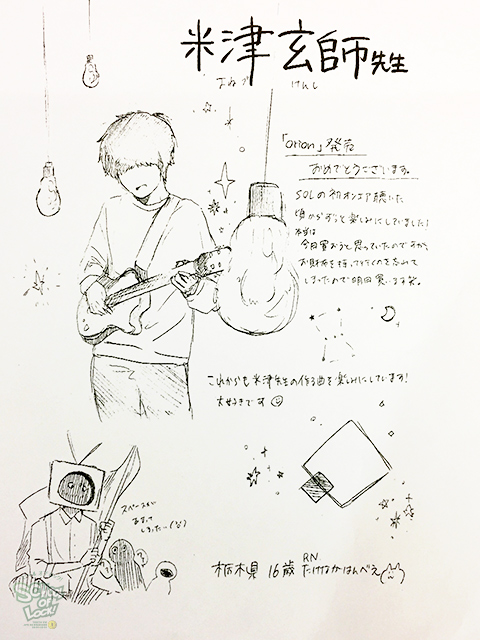 米津玄師先生
よねづ けんし
「orion」発売
おめでとうございます。
SOLの初オンエア聴いた
頃からずっと楽しみにしていました!
本当は
今日買おうと思っていたのですが、
お財布を持って行くのを忘れて
しまったので明日買います笑。
これからも米津先生の作る曲を楽しみにしています!
大好きです
スペースが
あまって
しまったー
栃木県 16歳 RN たけなかはんべえ
SCHOOL OF LOCK!